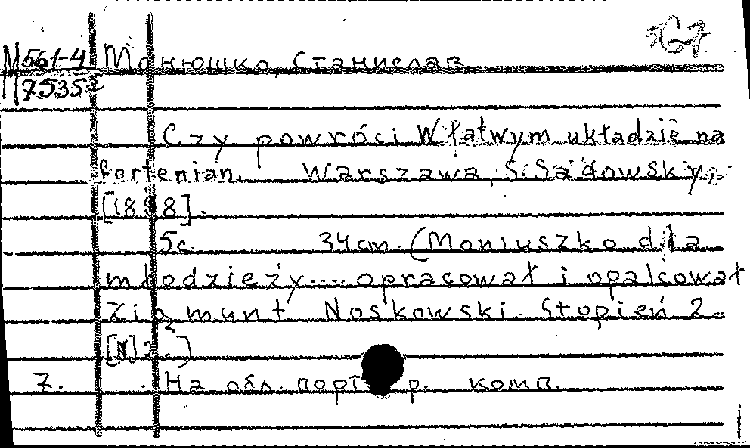 М561-4 Монюшко, Станислав
М7535²
Czy powróci W łatwym układzie na
fortepian. Warszawa, S. Sadowsky,
[1898].
5с. 34cm. (Moniuszko dla
młodzieży.... opracował i opalcował
Zigmunt Noskowski. Stopień 2.
7. На обл. порт р. комп.